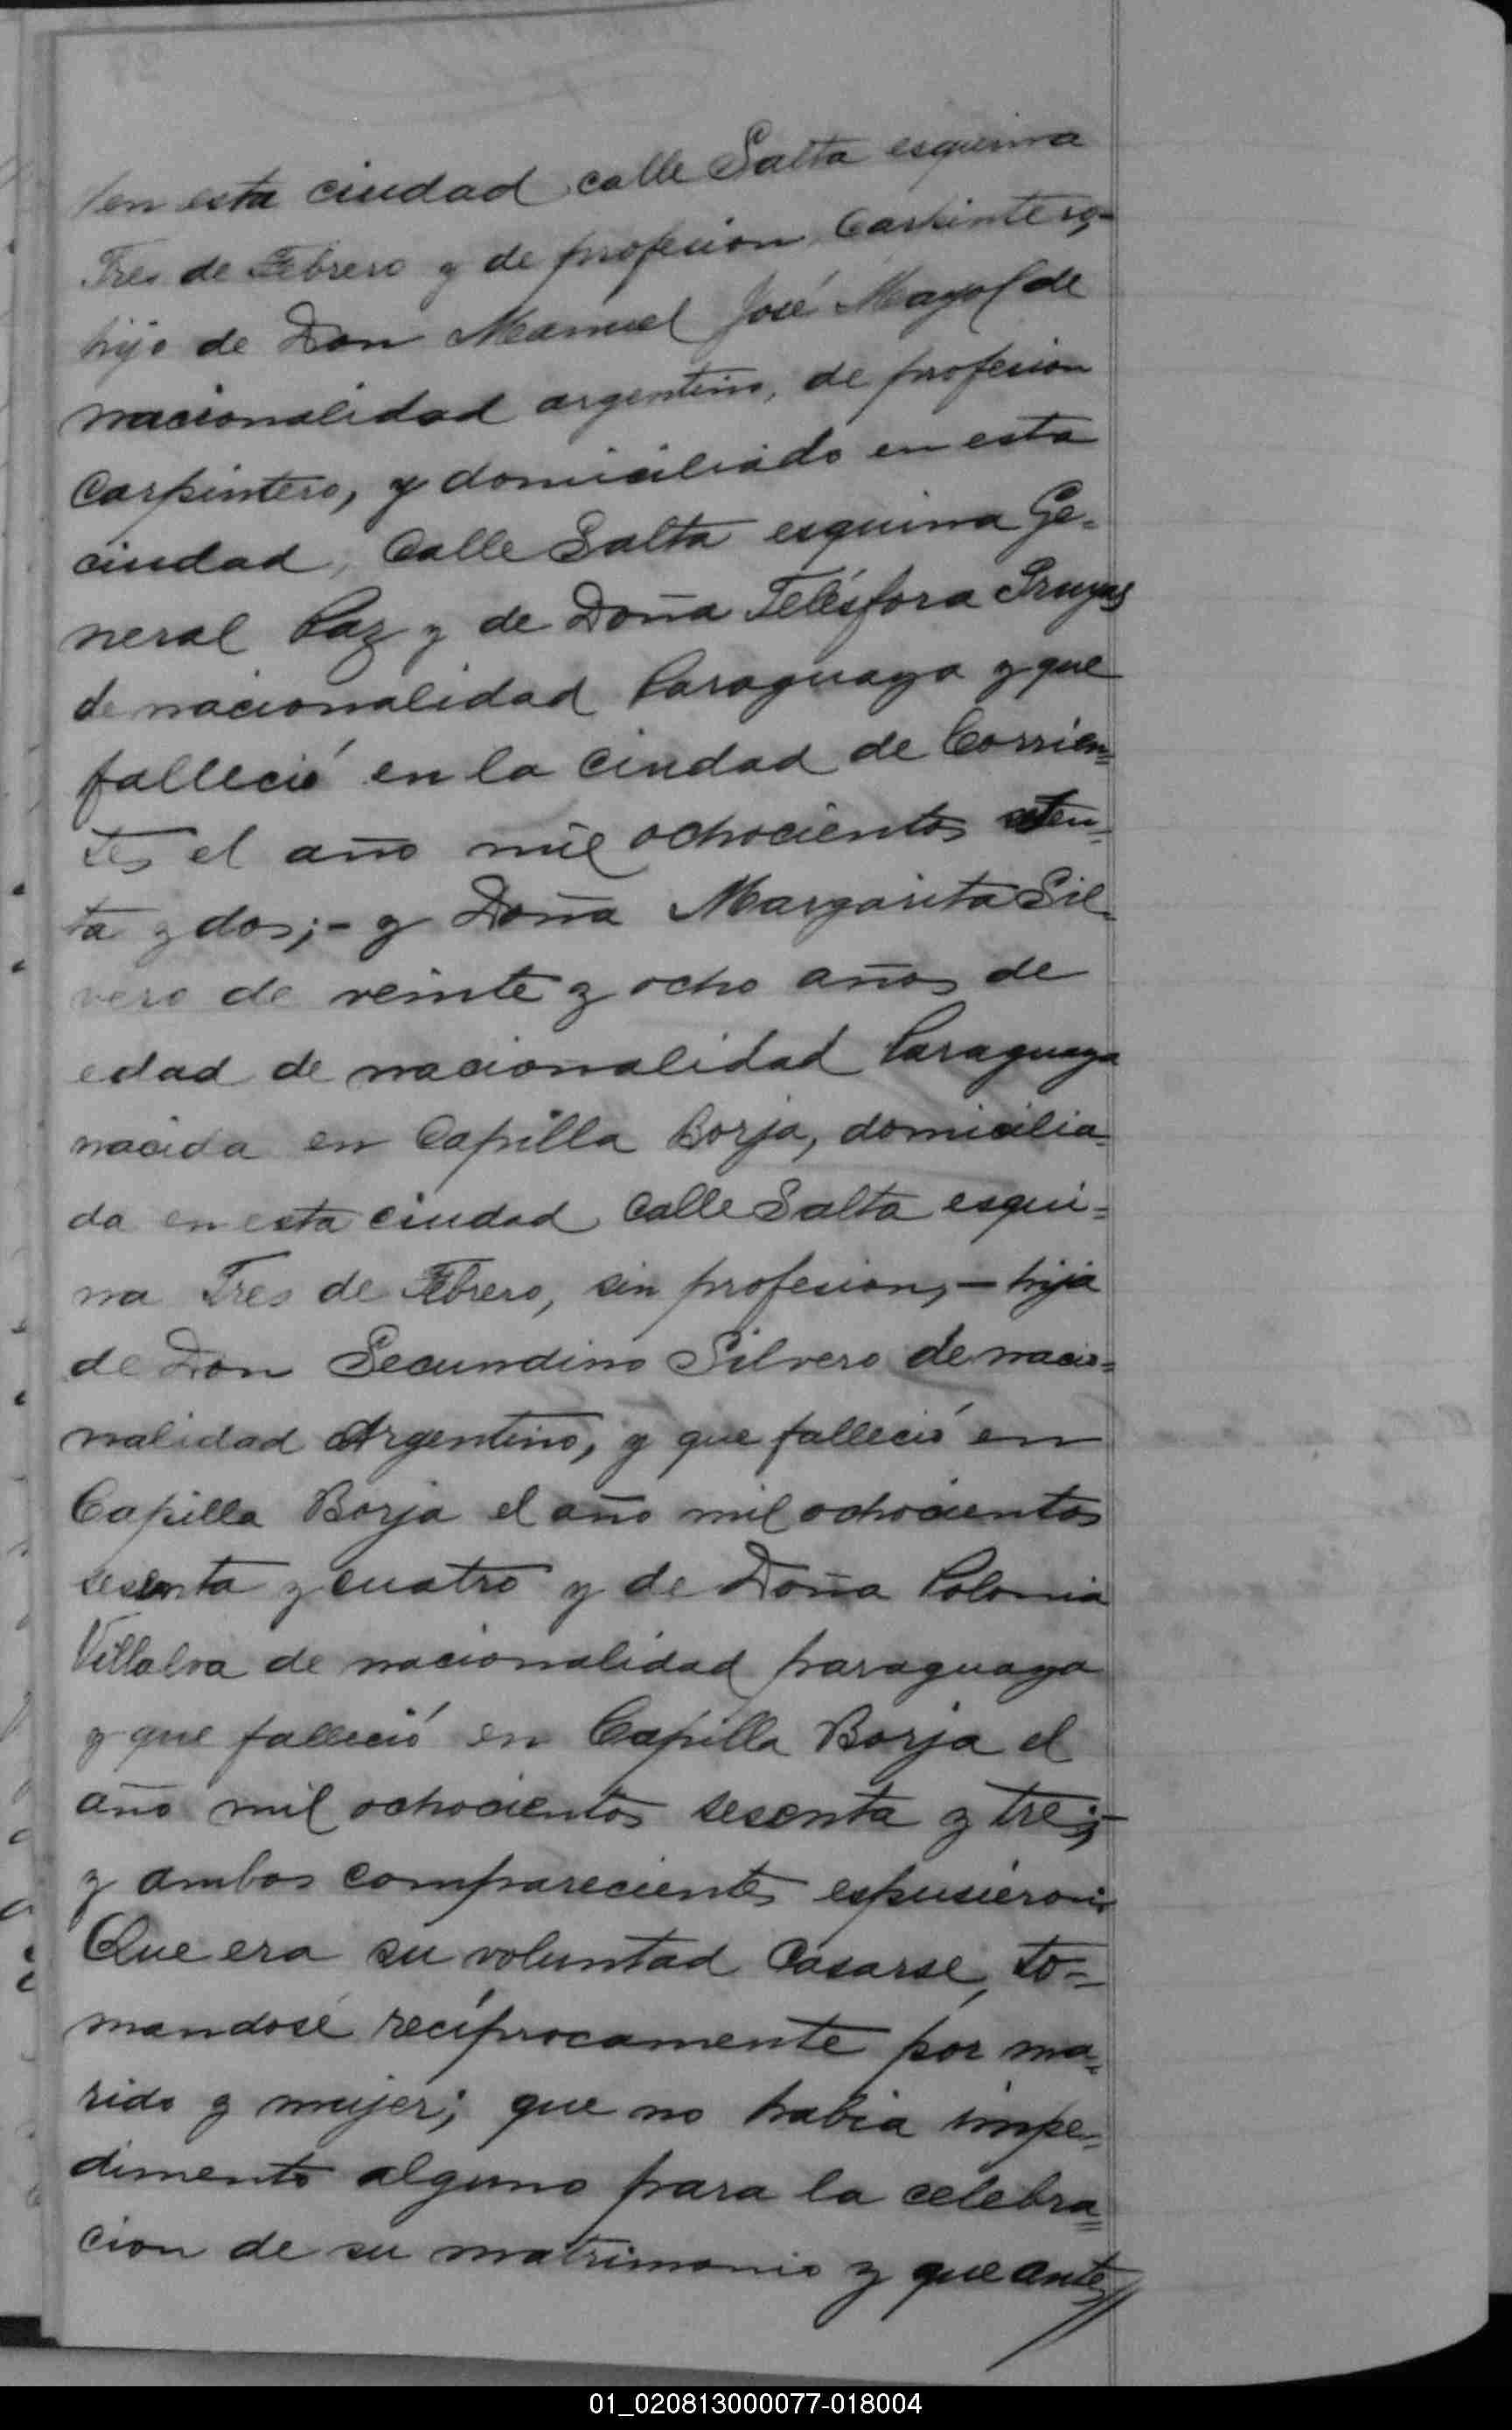 /en esta ciudad calle Salta esquina
Tres de Febrero y de profesion Carpintero,-
hijo de Don Manuel José Mayol de
nacionalidad argentino, de profesion
Carpintero, y domiciliado en esta
ciudad, Calle Salta esquina Ge=
neral Paz y de Doña Telésfora
de nacionalidad Paraguaya y que
falleció en la Ciudad de Corrien=
tes el año mil ochocientos seten=
ta y dos;- y Doña Margarita Sil=
vero de veinte y ocho años de
edad de nacionalidad Paraguaya
nacida en Capilla Borja, domicilia=
da en esta ciudad Calle Salta esqui=
na Tres de Febrero, sin profesion,- hija
de Don Secundino Silvero de nacio=
nalidad Argentino, y que falleció en
Capilla Borja el año mil ochocientos
sesenta y cuatro y de Doña Polonia
Villalva de nacionalidad paraguaya
y que falleció en Capilla Borja el
año mil ochocientos sesenta y tres;-
y ambos comparecientes espusieron:
Que era su voluntad Casarse, to=
mandosé recíprocamente por ma=
rido y mujer; que no habia impe=
dimento alguno para la celebra=
cion de su matrimonio y que ante//
01_020813000077-018004